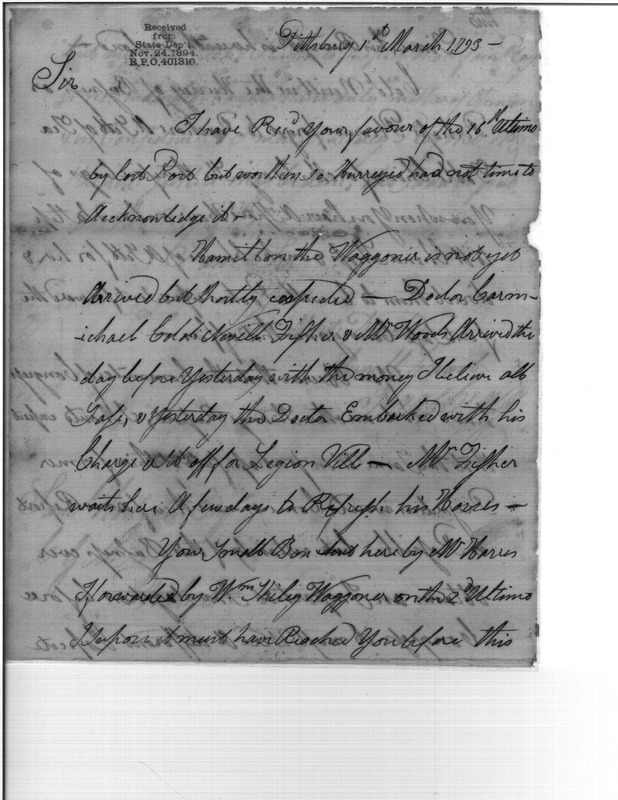 Received
from
State Dep't
Nov. 24, 1894.
R.P.O. 401310.
Pittsburg 1st March 1793 —
Sir
I have Recd. Your favour of the 16th Ultimo
by last Post but was then so Hurreyed had not time to
Acknowledge it —
Hamilton the Waggoner is not yet
Arrived but Shortly expected — Doctor Carm-
ichael Nevill Fisher & Mr Woods Arrived the
day before Yesterday with the money I believe all
Safe, & Yesterday the Doctor Embarked with his
Charge & Set off for Legion Vill — Mr. Fisher
waits here A few days to Refresh his Horses —
Your Small Box here by Mr Harris
I forwarded by Wm Waggoner on the 2d Ultimo
I Supose it must have Reached You before this